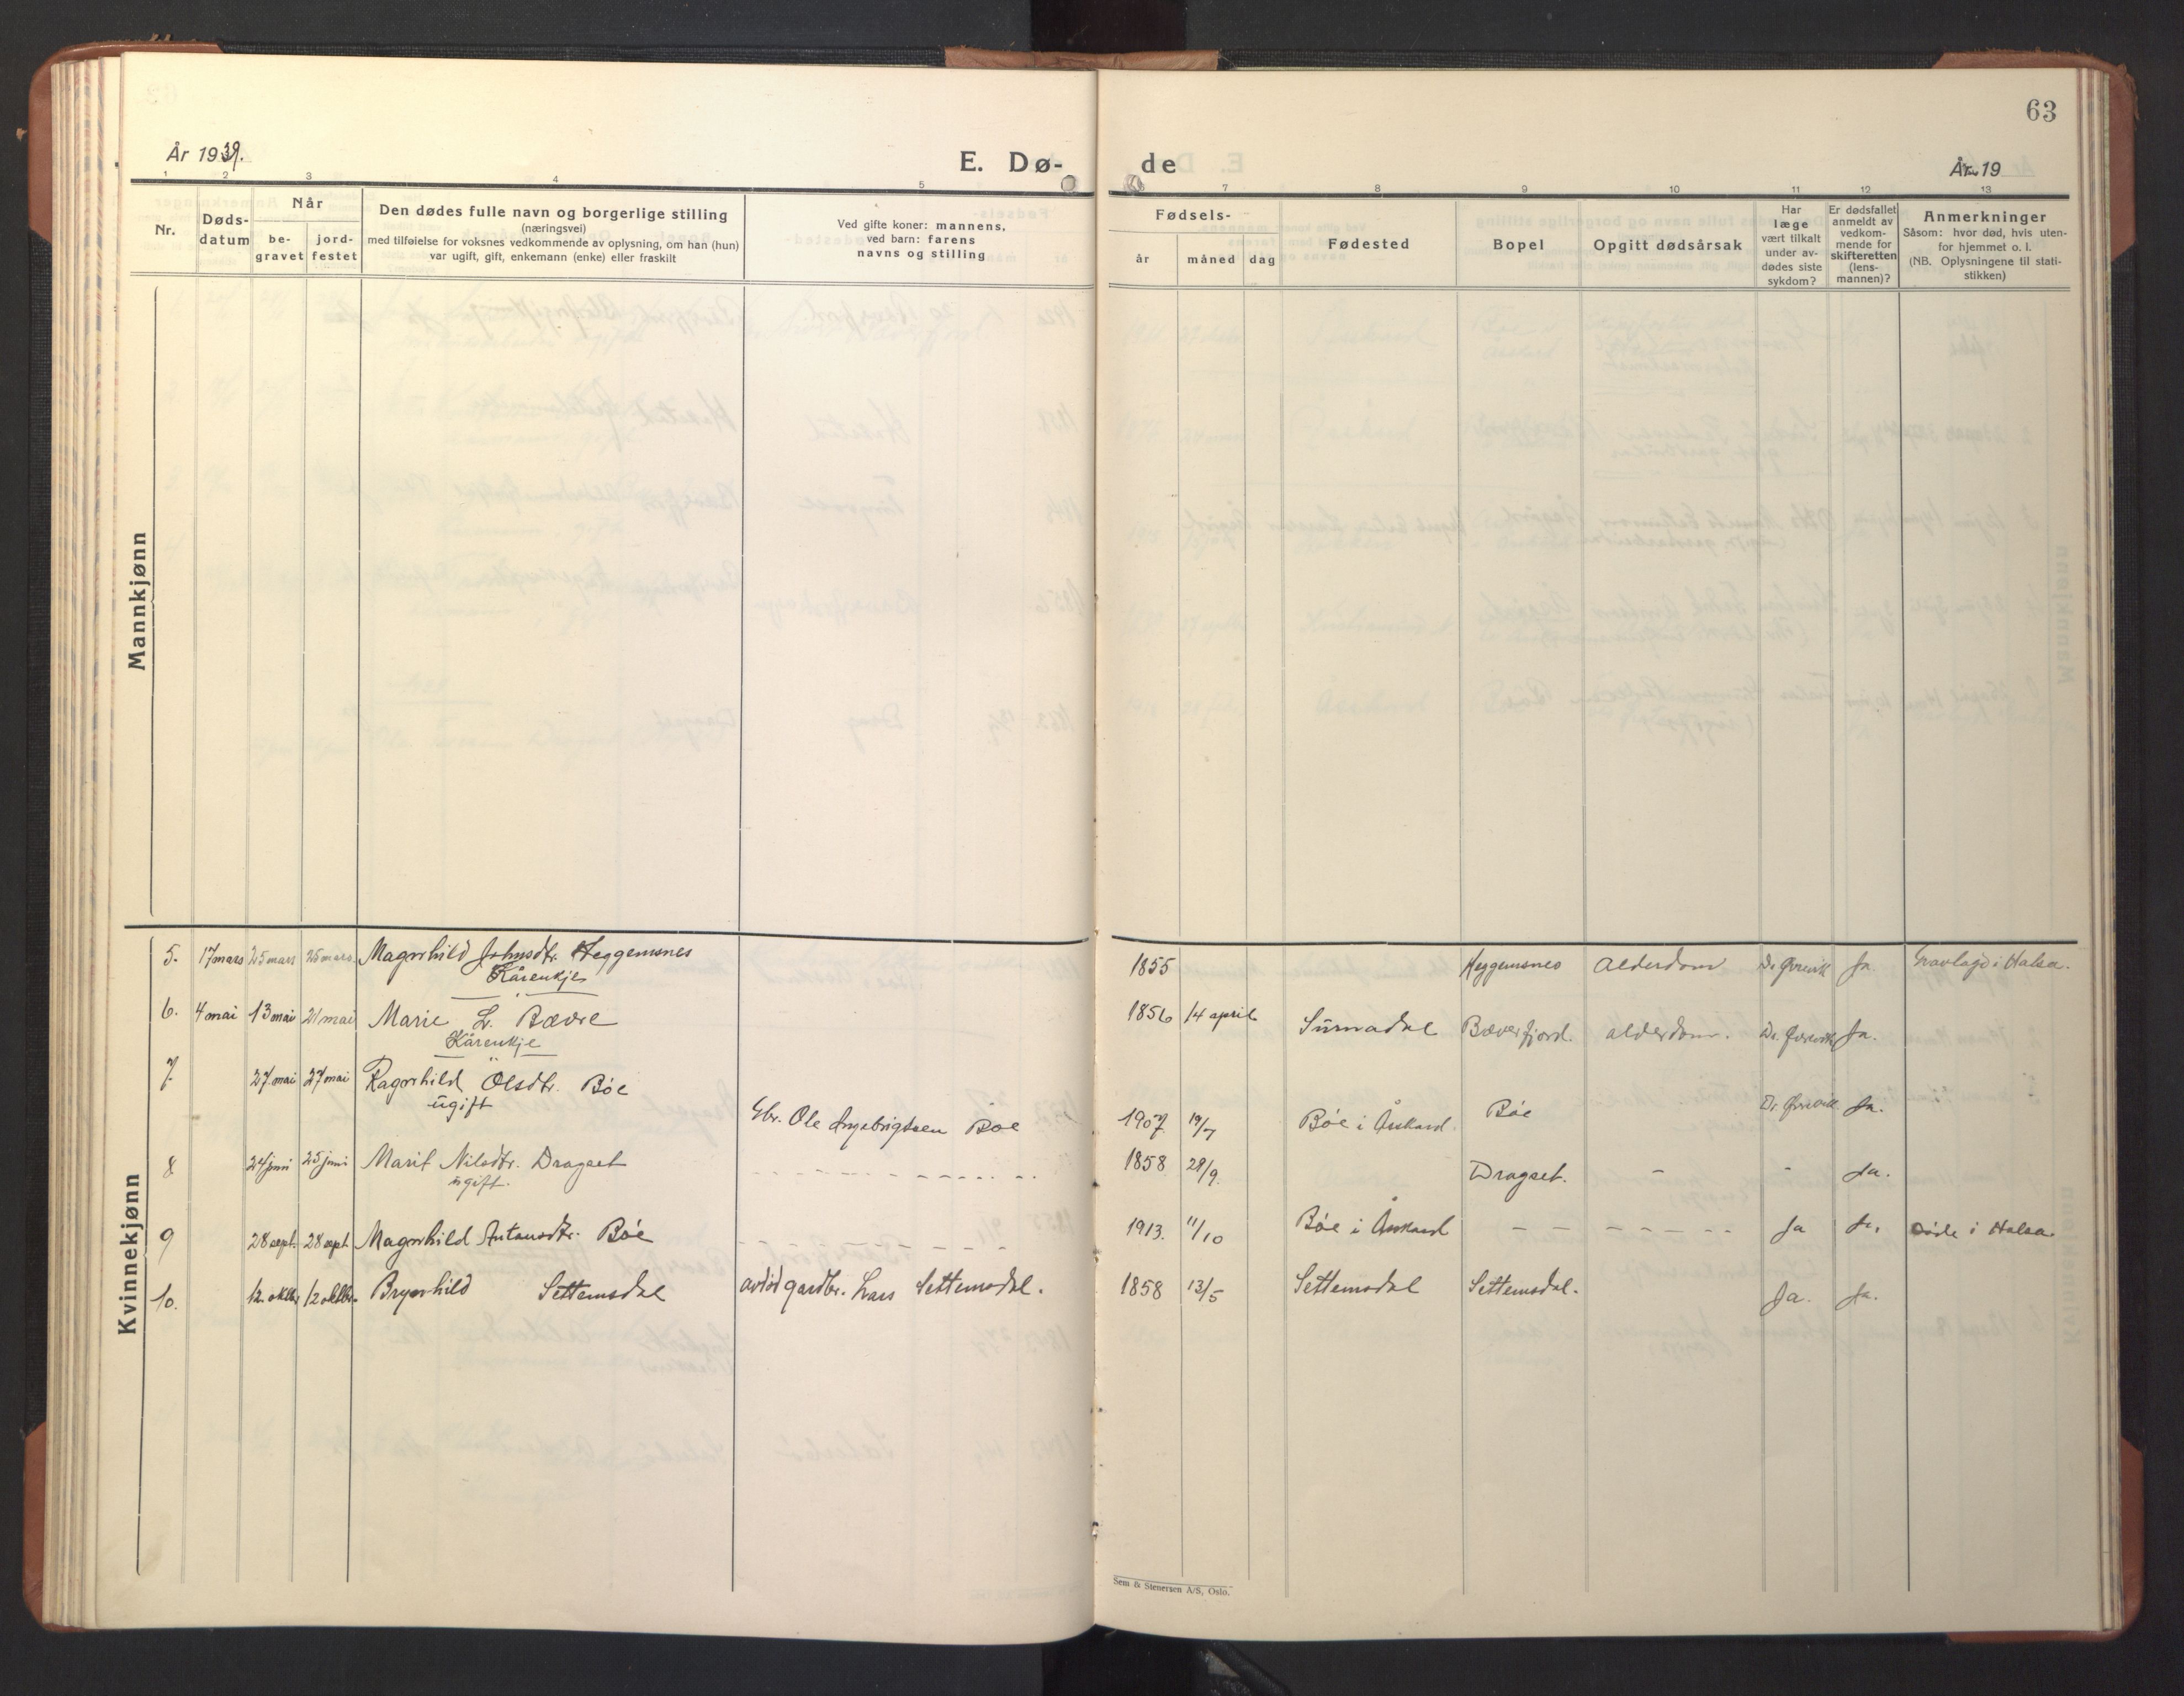 63
År 1939.
E. Dø-
de
År 19
1 2 3 4 5 7 8 9 10 11 12 13
Nr.
Døds-
datum
Når
be-
gravet
jord-
festet
Den dødes fulle navn og borgerlige stilling
(næringsvei)
med tilføielse for voksnes vedkommende av oplysning, om han (hun)
var ugift, gift, enkemann (enke) eller fraskilt
Ved gifte koner: mannens,
ved barn: farens
navns og stilling
Fødsels-
år måned dag
Fødested
Bopel
Opgitt dødsårsak
Har
læge
vært tilkalt
under av-
dødes siste
sykdom?
Er dødsfallet
anmeldt av
vedkom-
mende for
skifteretten
(lens-
mannen)?
Anmerkninger
Såsom: hvor død, hvis uten-
for hjemmet o. l.
(NB. Oplysningene til stati-
stikken)
Mannkjønn
Kvinnekjønn
5. 17 mars 25 mars 25 mars. Magnhild Johnsdtr. Heggemsnes 1855 Heggemsnes Alderdom Dr. Øvrevik Ja Gravlagd i Halsa.
Kårenkje
6. 4 mai 13 mai 21 mai Marie L. Bævre 1856 14 april Surnadal Bæverfjord. alderdom. Dr. Øvrevik Ja.
Kårenkje
7. 27 mai 27 mai Ragnhild Olsdtr. Bøe
ugift
Gbr. Ole Ingebrigtsen Bøe 1907 19/7 Bøe i Åsskard. Bøe Dr. Øvrevik. Ja.
8 24 juni 25 juni Marit Nilsdtr. Dragset - - - - - - - - 1858 28/9. Dragset. - - Ja.
ugift.
9 28 sept. 28 sept Magnhild Antonsdtr. Bøe - - - - - - - 1913. 11/10 Bøe i Åsskard - - - - - - - Ja Ja. Døde i Halsa.
10. 12. oktbr 12 oktbr. Brynhild Settemsdal avdød gardbr. Lars Settemsdal. 1858 13/5 Settemsdal Settemsdal. Ja. Ja.
Sem & Stenersen A/S, Oslo.